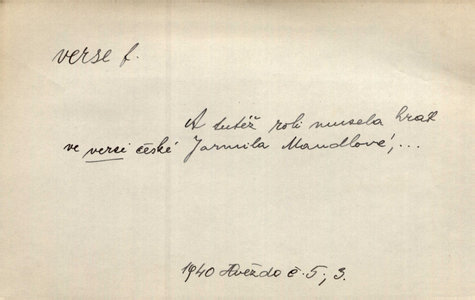 verse f.
A tutéž roli musela hrát
ve versi české Jarmila Mandlová,...
1940 Hvězda č. 5, 3.